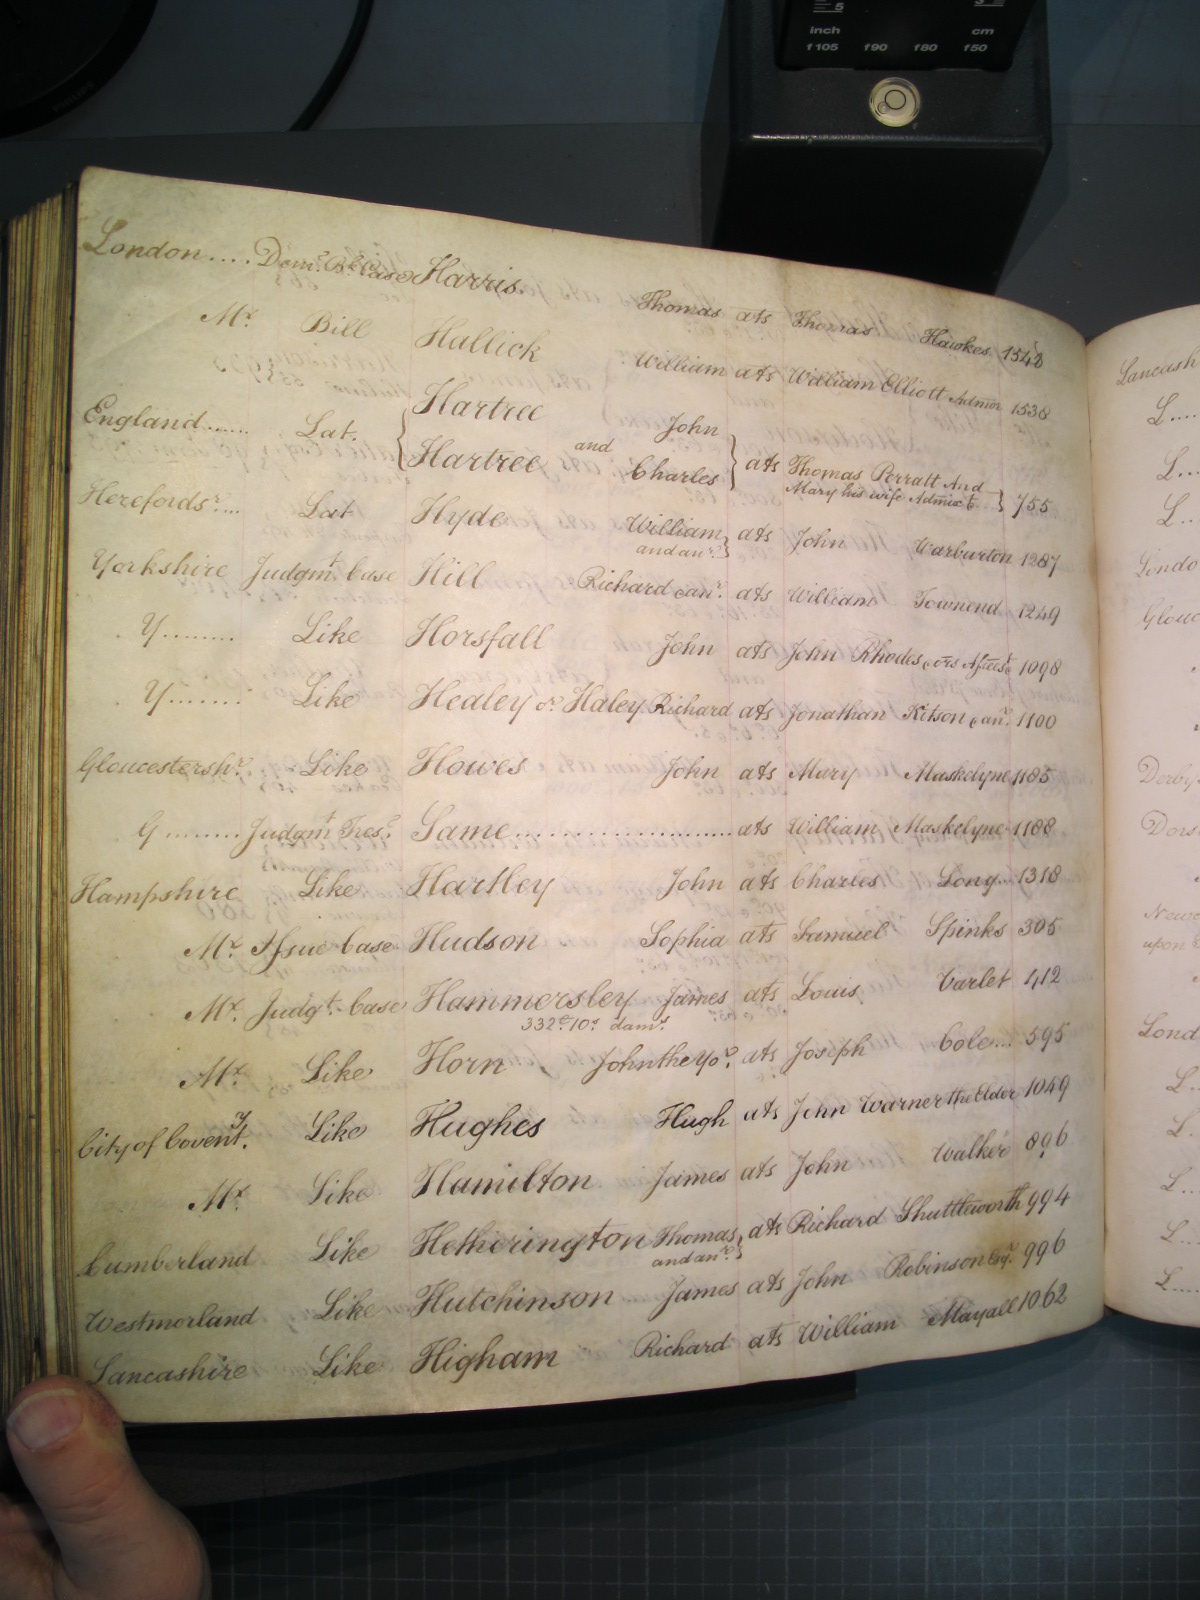 5
inch cm
1105 190 180 150
PHILIPS
London.... Harris. Thomas ats Thomas Hawkes 1548
Mr. Bill Hallick William ats William Elliott Admor 1538
Hartree John
England...... Lat. and ats Thomas Perratt And
Hartree Charles Mary his wife 755
Herefordsr... Lat Hyde William ats John Warburton 1287
and anr.
Yorkshire Judgmt. Case Hill Richard & anr. ats William Townend 1249
Y........ Like Horsfall John ats John Rhodes 1098
Y....... Like Healey or Haley Richard ats Jonathan Kitson & anr. 1100
Gloucestershr. Like Howes John ats Mary Maskelyne 1185
G........ Judgmt Tresps. Same........................ ats William Maskelyne 1188
Hampshire Like Hartley John ats Charles Long... 1318
Mr. Issue Case Hudson Sophia ats Samuel Spinks 305
Mr. Judgt. Case Hammersley James ats Louis Carlet 412
332£.10s dams
Mr. Like Horn John the yor. ats Joseph Cole... 595
City of Coventy. Like Hughes Hugh ats John Warner the Elder 1049
Mr. Like Hamilton James ats John Walker 896
Cumberland Like Hetherington Thomas ats Richard Shuttleworth 994
and anr.
Westmorland Like Hutchinson James ats John Robinson Esqr. 996
Lancashire Like Higham Richard ats William Mayall 1062
Lancash
L....
L...
L..
Londo
Glouc
Derby
Dors
Newc
upon
Lond
L...
L.
L...
L...
L....